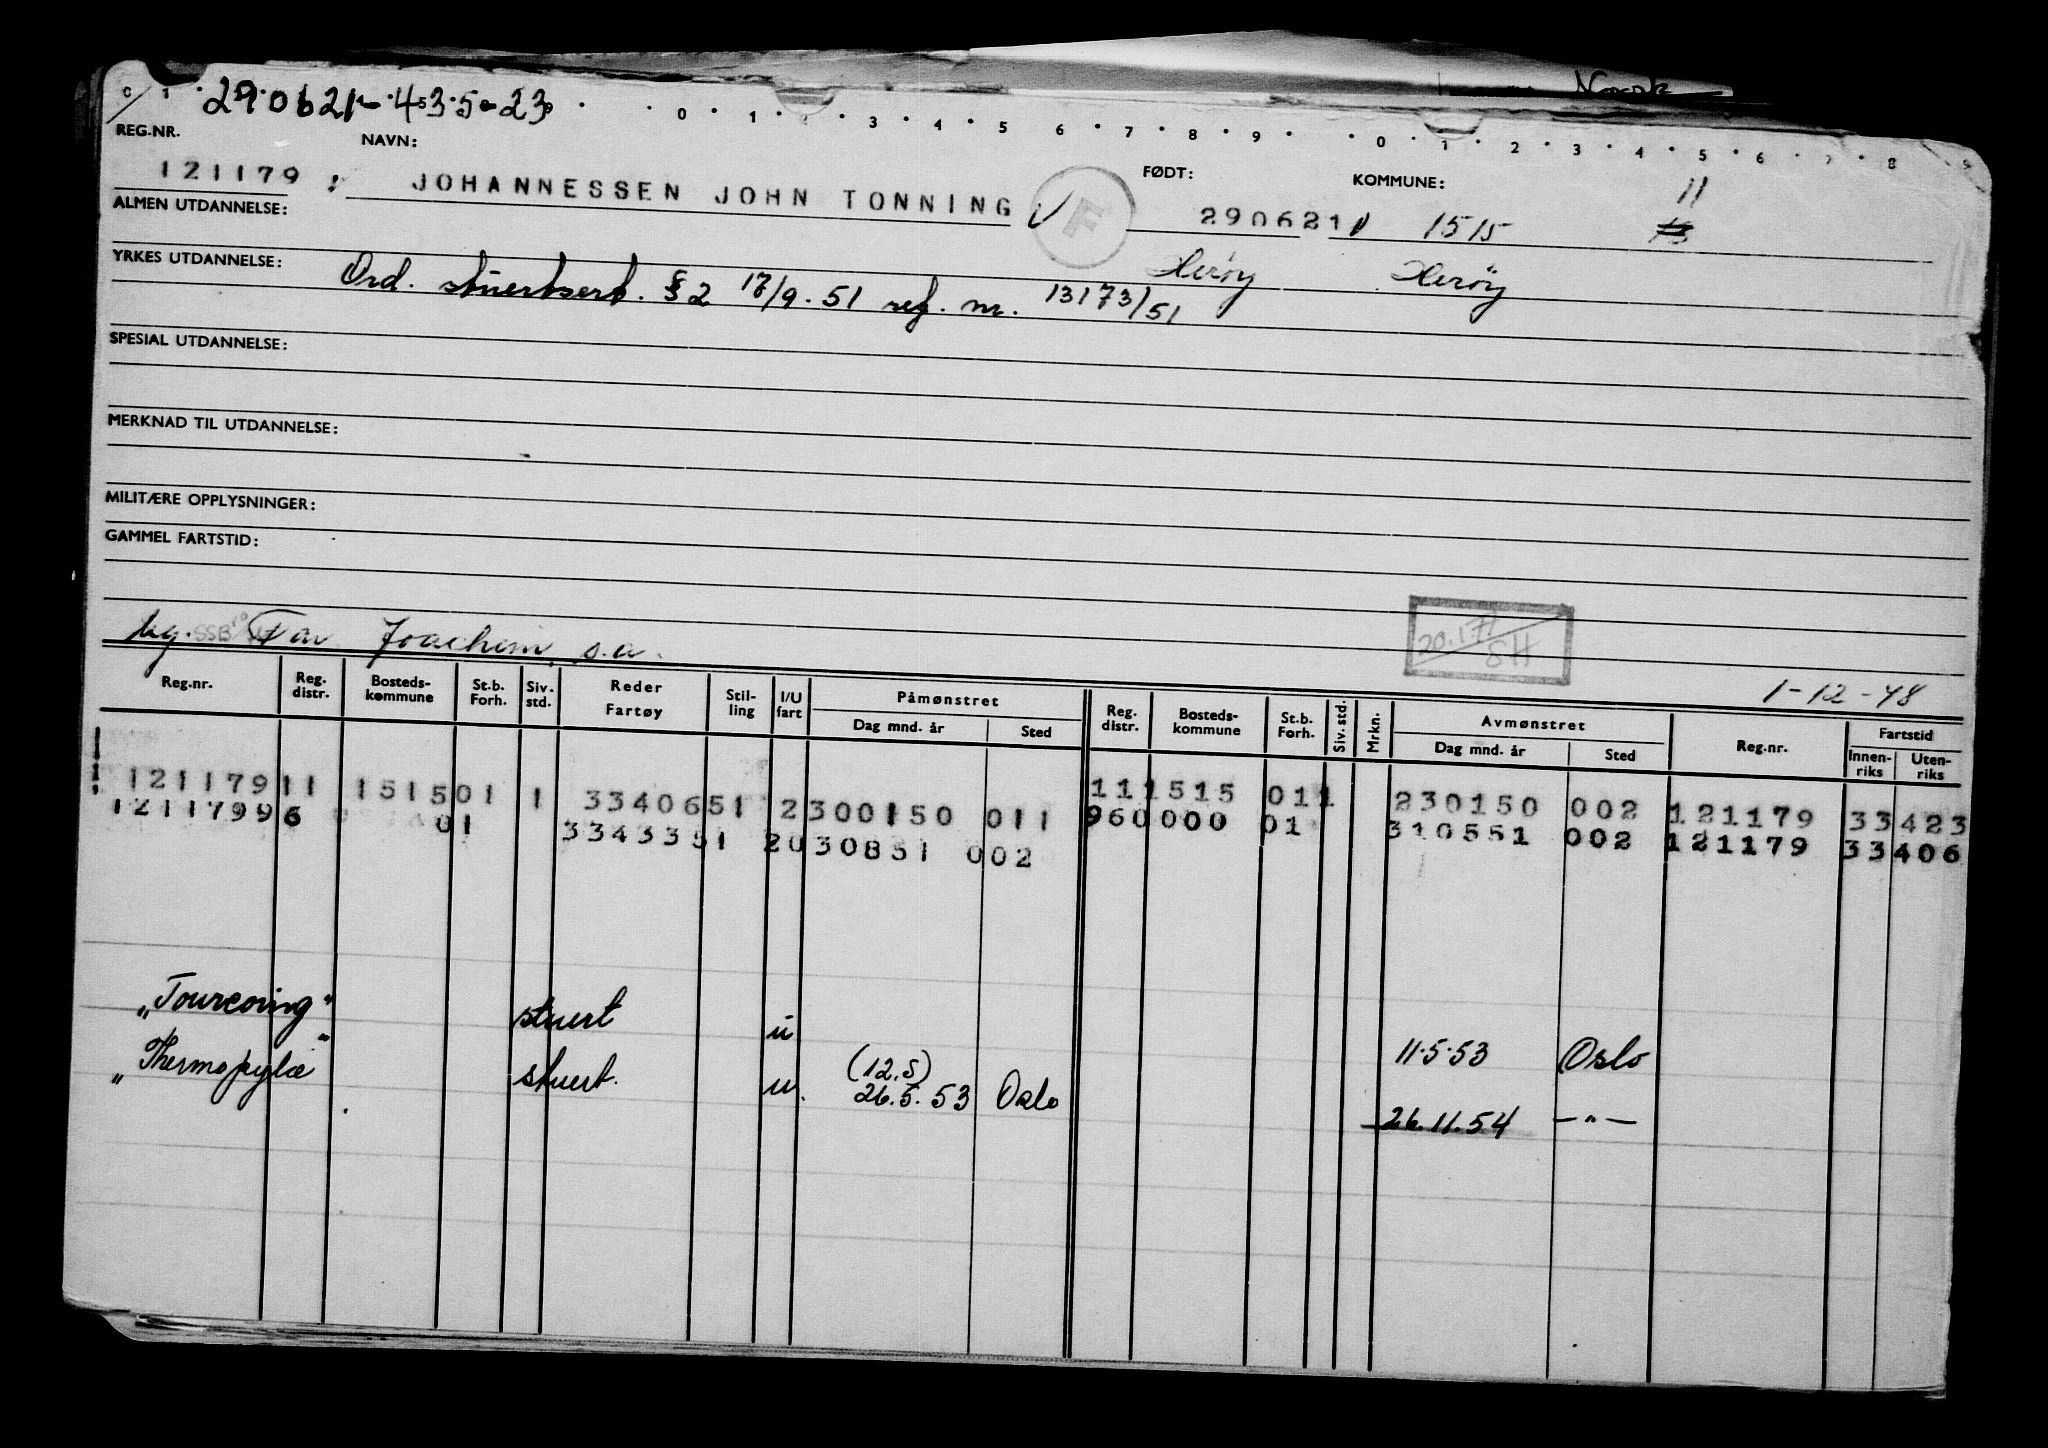 29·0621-·453·5-23
0 1 2 3 4 5 6 7 8 9 0 1 2 3 4 5 6 7 8
REG.NR. NAVN: FØDT: KOMMUNE:
121179 JOHANNESSEN JOHN TONNING F 290621 1515 11
ALMEN UTDANNELSE:
Herøy Herøy
YRKES UTDANNELSE: Ord. stuertsert. § 2 17/9.51 reg. nr. 13173/51
SPESIAL UTDANNELSE:
MERKNAD TIL UTDANNELSE:
MILITÆRE OPPLYSNINGER:
GAMMEL FARTSTID:
ug. Far Joachem, s.a.
20.1.71 SH
1-12-48
Reg.nr. Reg. distr. Bosteds- kommune St.b. Forh. Siv. std. Reder Fartøy Stil- ling I/U fart Påmønstret Dag mnd. år Sted Reg. distr. Bosteds- kommune St.b. Forh. Siv. std. Mrkn. Avmønstret Dag mnd. år Sted Reg.nr. Fartstid Innen- riks Uten- riks
121179 11 1515 01 1 3340651 2 300150 011 11 1515 01 1 230150 002 121179 33423
121179 96 01 3343351 2 030851 002 96 0000 01 310551 002 121179 33406
"Tourcoing" stuert u 11.5.53 Oslo
"Thermopylæ" stuert. u. (12.5) 26.5.53 Oslo 26.11.54 —"—